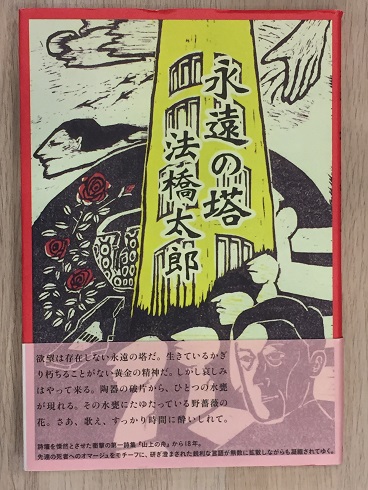 永遠の塔
法橋太郎
欲望は存在しない永遠の塔だ。生きているかぎ
り朽ちることがない黄金の精神だ。しかし哀しみ
はやって来る。陶器の破片から、ひとつの水甕
が現れる。その水甕にたゆたっている野薔薇の
花。さあ、歌え、すっかり時間に酔いしれて。
詩壇を愕然とさせた衝撃の第一詩集『山上の舟』から18年。
先達の死者へのオマージュをモチーフに、研ぎ澄まされた鋭利な言語が無数に拡散しながらも凝縮されてゆく。